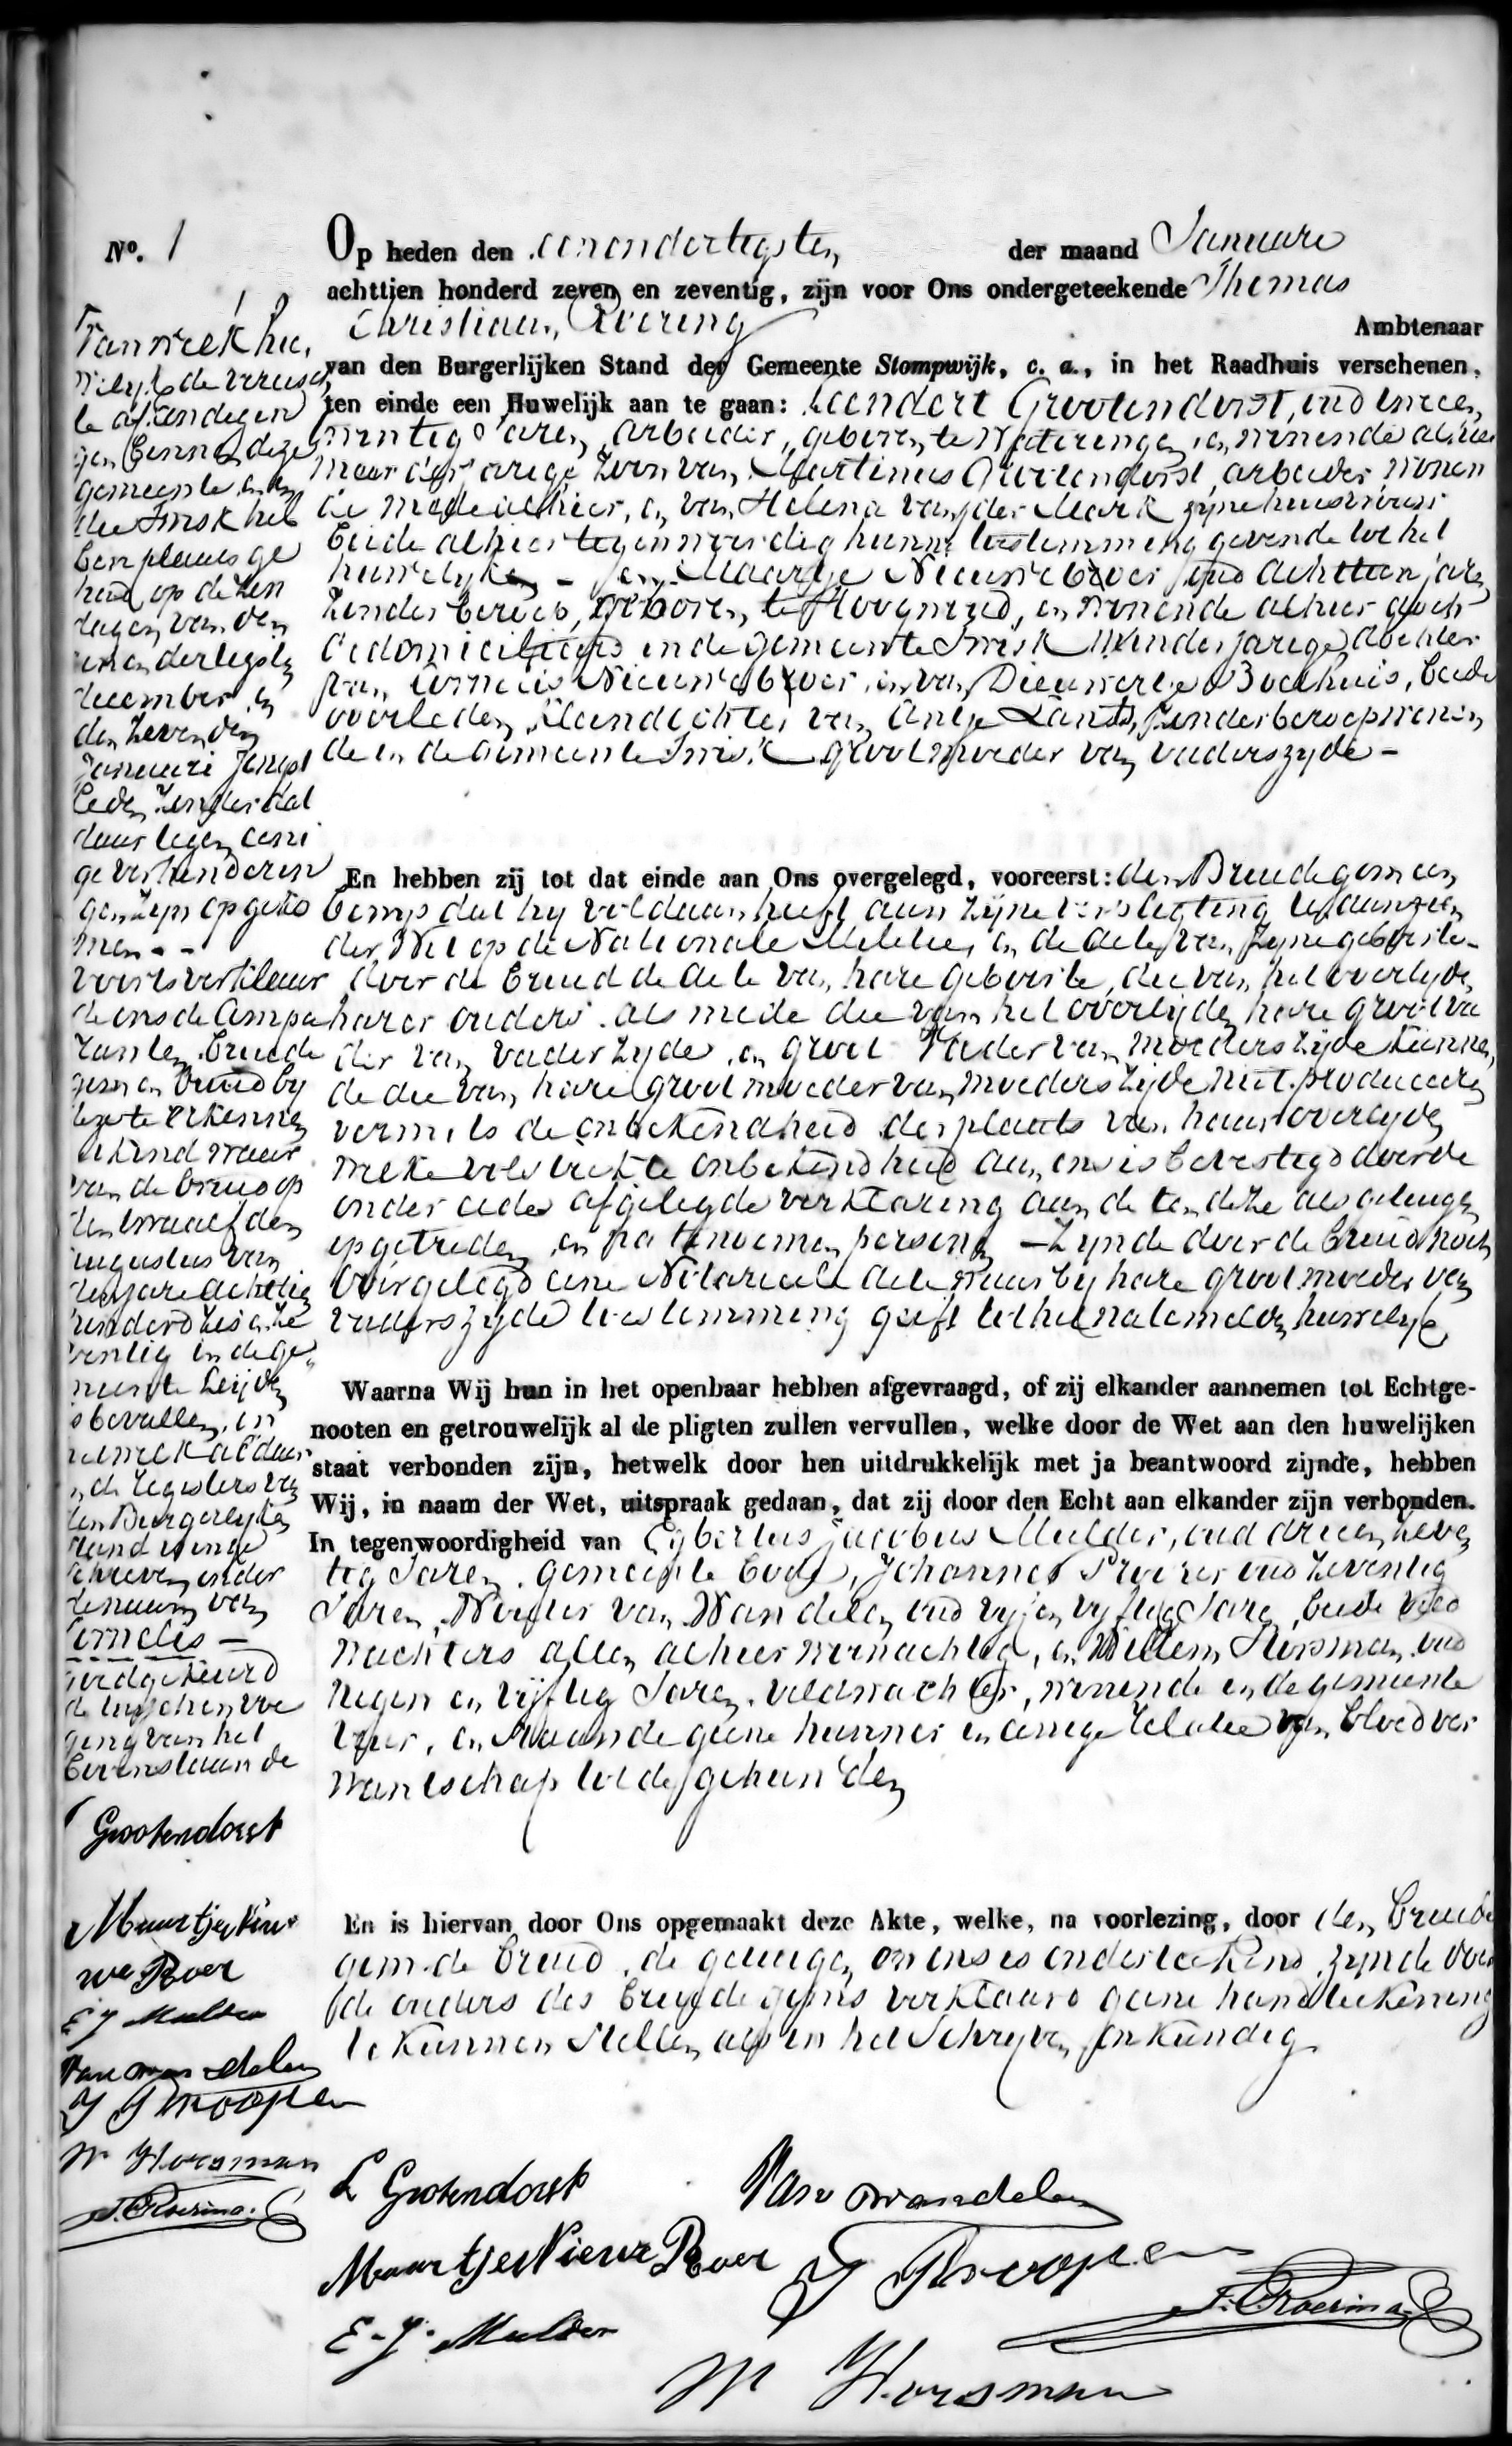 No. 1
Op heden den eenendertigsten der maand Januari
achttien honderd zeven en zeventig, zijn voor Ons ondergeteekende Thomas
Christiaan Roering Ambtenaar
van den Burgerlijken Stand der Gemeente Stompwijk, c. a., in het Raadhuis verschenen,
ten einde een Huwelijk aan te gaan: Leendert Grootendorst, oud tweeen
twintig Jaren, arbeider, geboren te Wateringen en wonende alhier
meerderjarige zoon van Martinus Grootendorst, arbeider wonen
de mede alhier, en van Helena van der Mark zyne huisvrouw
beide alhier tegenwoordig hunne toestemming gevende tot het
huwelyk en Maartje Nieuweboer oud achttien jaren
zonder beroep, geboren te Hoogwoud, en wonende alhier doch
gedomicilieerd in de gemeente Twisk Minderjarige dochter
van Cornelis Nieuweboer en van Dieuwertje Boekhuis, beide
overleden, Kleindochter van Antje Lants, zonder beroep wonen
de in de Gemeente Twisk grootmoeder van vaderszyde -
En hebben zij tot dat einde aan Ons overgelegd, vooreerst: den Bruidegom een
bewys dat hy voldaan heeft aan zijne verpligting ten aanzien
der Wet op de Nationale Militie, en de acte van zyne geboorte -
door de bruid de acte van hare geboorte, die van het overlyden
harer ouders als mede die van het overlijden hare grootva
der van vaderzyde en groot Vader van moeders zyde kunnen
de die van hare grootmoeder van moeders zijde niet produceren
vermits de onbekendheid der plaats van haar overlyden
welke volstrekte onbekendheid aan ons is bevestigd door de
onder eede afgelegde verklaring aan de ten deze als getuigen
opgetreden en na te noemen personen - Zynde door de bruid noch
overgelegd eene Notarieele acte waarby hare grootmoeder van
vaderszyde toestemming geeft tot het natemelden huwelyk
Waarna Wij hun in het openbaar hebben afgevraagd, of zij elkander aannemen tot Echtge-
nooten en getrouwelijk al de pligten zullen vervullen, welke door de Wet aan den huwelijken
staat verbonden zijn, hetwelk door hen uitdrukkelijk met ja beantwoord zijnde, hebben
Wij, in naam der Wet, uitspraak gedaan, dat zij door den Echt aan elkander zijn verbonden.
In tegenwoordigheid van Egbertus Jacobus Mulder, oud drieen zeven
tig Jaren, gemeente bode, Johannes oud zeventig
Jaren, Wouter van Wandelen oud vyf en vyftig Jaren, beide veld
wachters allen alhier woonachtig, en Willem Horsman oud
negen en vijftig Jaren, veldwachter, wonende in de gemeente
Veur, en staande geene hunner in eenige relatie van bloedver
wantschap tot de gehuwden
En is hiervan door Ons opgemaakt deze Akte, welke, na voorlezing, door den bruide
gom de bruid, de getuigen en ons is onderteekend, zynde door
de ouders des bruidegoms verklaard geene handteekening
te kunnen stellen als in het Schryven onkundig
L Grotendorst
Van Wandelen
Maartje Nieuwe Boer
E. J. Mulder
T. C. Roering
W Horsman
Van welk hu
welyk de vereisch
te afkondigin
gen binnen deze
gemeente en in
die Twisk heb
ben plaats ge
had op de Zon
dagen van den
een en dertigsten
December en
den zevenden
Januari jongst
leden zonder dat
daar tegen eeni
ge verhinderin
gen zyn opgeko
men - -
voorts verklaar
de ons de Compa
ranten bruide
gom en bruid by
deze te erkennen
een kind waar
van de bruid op
den twaalfden
augustus van
den jare achttien
honderd zes en ze
ventig in de ge
meente Leyden
is bevallen, en
hetwelk aldaar
in de registers van
den Burgerlyken
stand is inge
schreven onder
de naam van
Cornelis -
goedgekeurd
de tusschenvoe
ging van het
bovenstaande
Grootendorst
Maartje Nieu
we Boer
E J Mulder
Van Wandelen
W Horsman
T. C. Roering